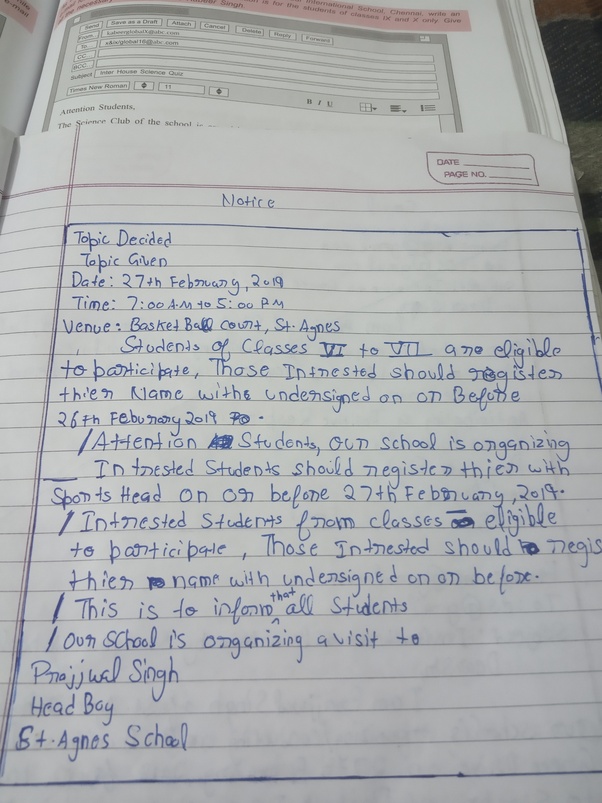 International School, Chennai, write an
is for the students of classes IX and X only. Give
Send Save as a Draft Attach Cancel Delete Reply Forward
From
To
CC
BCC
Subject Inter House Science Quiz
Times New Roman 11 B I U
Attention Students,
The Science Club of the school is
DATE
PAGE NO.
Notice
Topic Decided
Topic Given
Date: 27th February, 2019
Time: 7:00 A.M to 5:00 PM
Venue: Basket Ball Court, St. Agnes
Students of Classes VI to VII are eligible
to participate, Those Intrested should register
thier Name withe undersigned on or Before
26th Feburary 2019
/ Attention Students, our school is organizing
Intrested Students should register thier with
Sports Head on or before 27th February, 2019.
/ Intrested Students from classes eligible
to participate, Those Intrested should regis
thier name with undersigned on or before.
/ This is to inform that all Students
/ our school is organizing a visit to
Prajjwal Singh
Head Boy
St. Agnes School